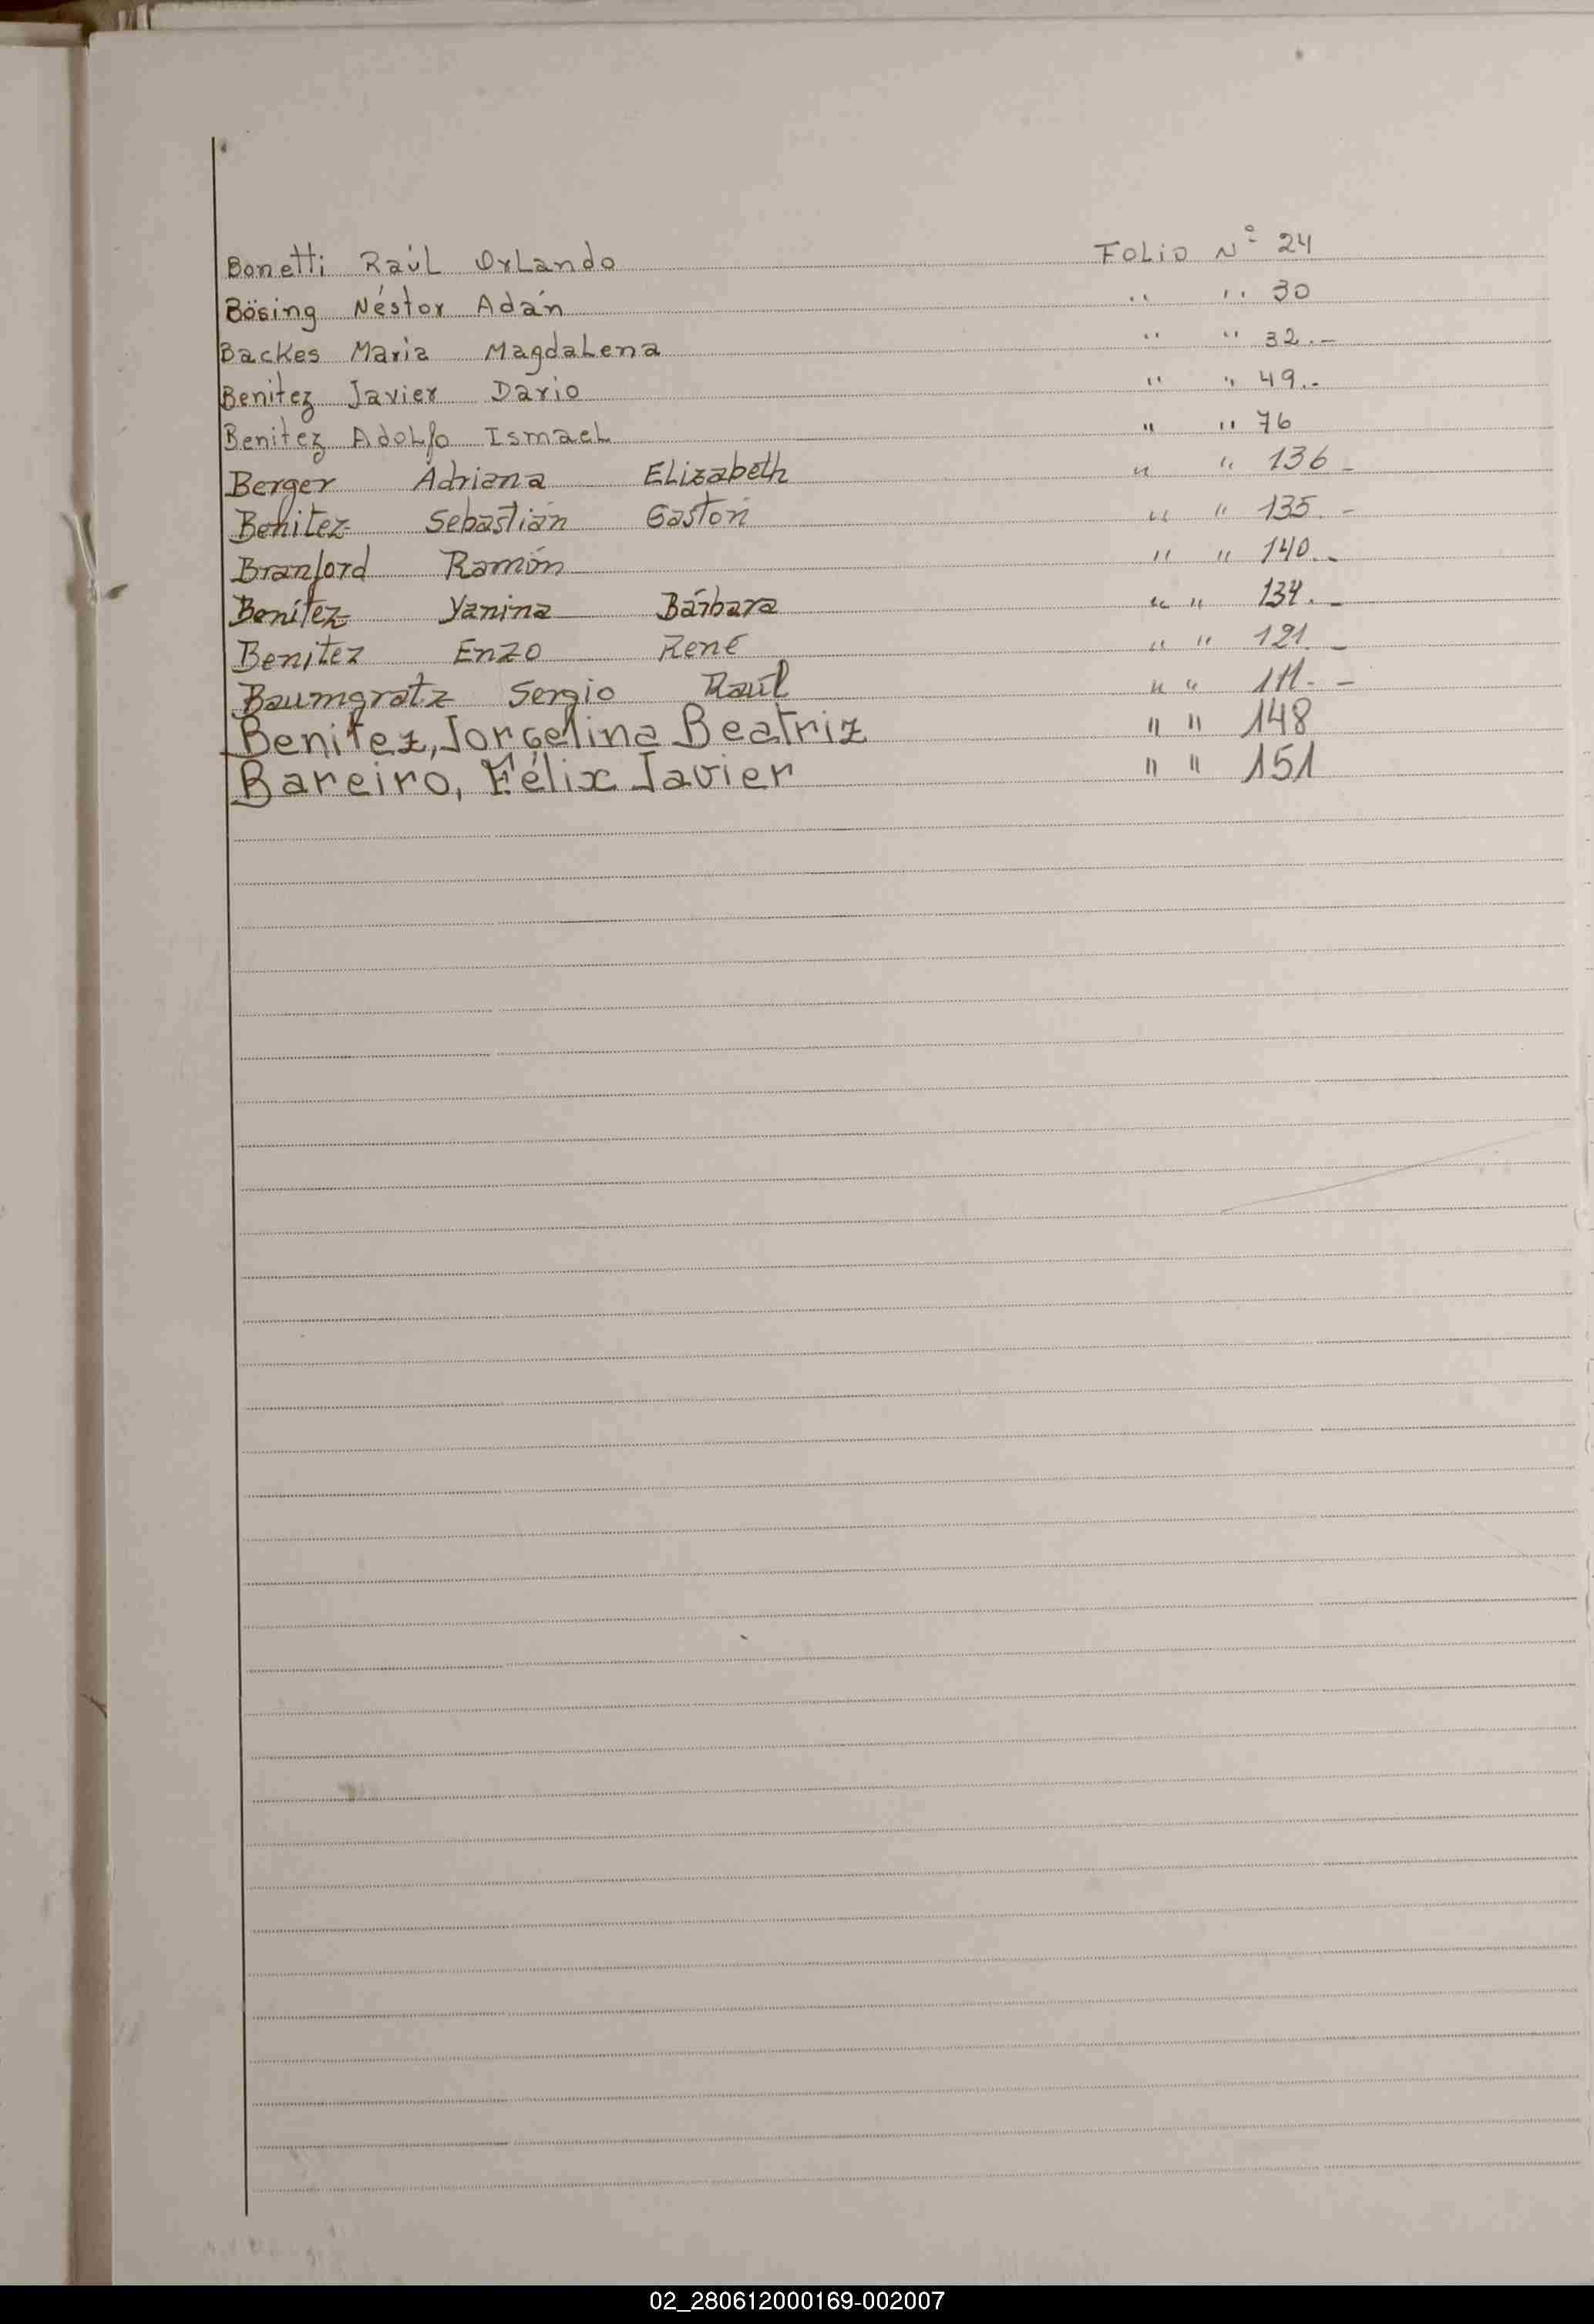 Bonetti Raúl Orlando Folio Nº 24
Bösing Néstor Adán " " 30
Backes Maria Magdalena " " 32.-
Benitez Javier Dario " " 49.-
Benitez Adolfo Ismael " " 76
Berger Adriana Elizabeth " " 136-
Benitez Sebastián Gastón " " 135.-
Branford Ramón " " 140.-
Benítez Yanina Bárbara " " 134.-
Benitez Enzo René " " 121.-
Baumgratz Sergio Raúl " " 111.-
Benitez, Jorgelina Beatriz " " 148
Bareiro, Félix Javier " " 151
02_280612000169-002007